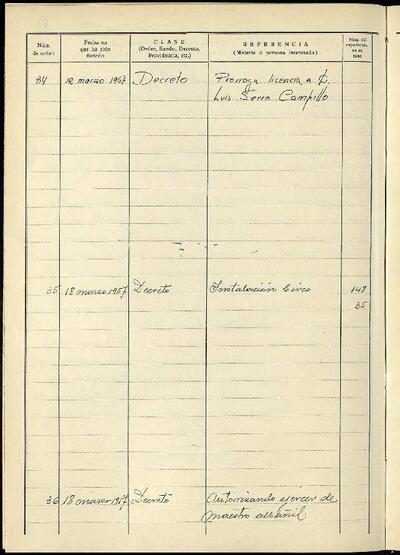 Núm. de orden
Fecha en que ha sido dictado
CLASE
(Orden, Bando, Decreto, Providencia, etc.)
REFERENCIA
(Materia o persona interesada)
Núm. del expediente en su caso
34 12 marzo 1957 Decreto Prorroga licencia a D.
Luis Serra Campillo
35 18 marzo 1957 Decreto Instalación Circo 148
35
36 18 marzo 1957 Decreto Autorizando ejercer de
maestro albañil.